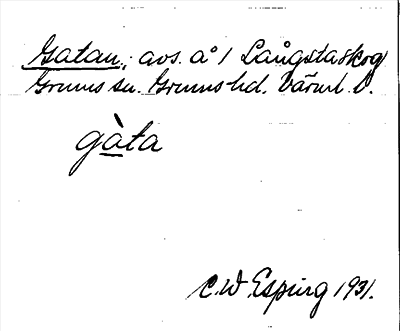 Gatan, avs. å 1 Långstaskog
Grums sn. Grums hd. Värml. l.
gàta
C.W. Esping 1931.